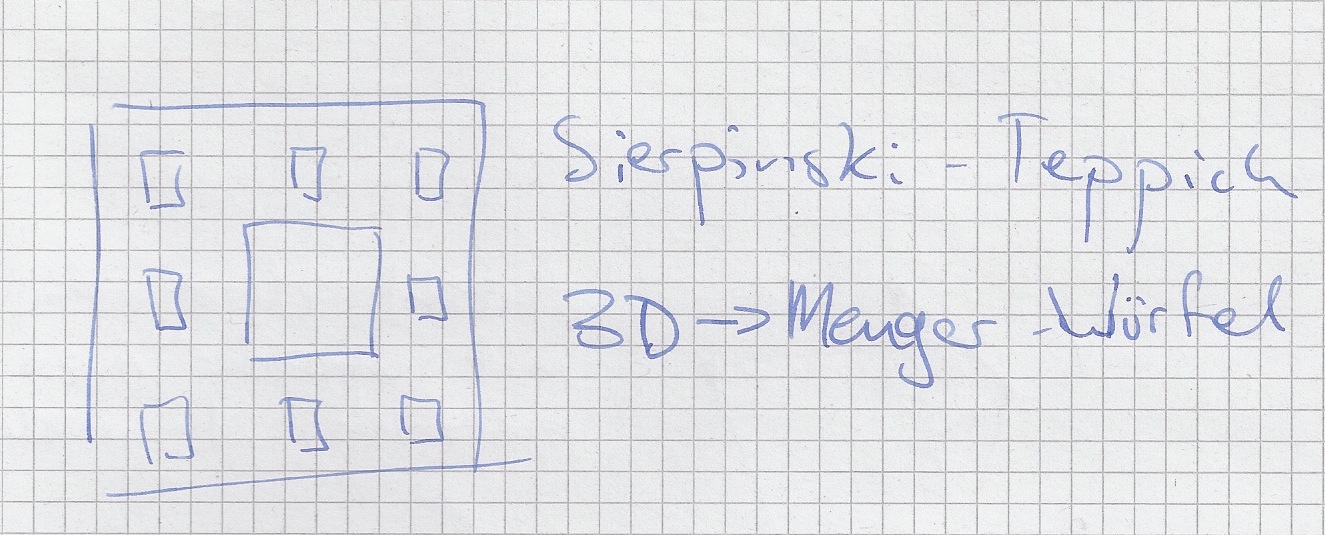 Sierpinski-Teppich
3D → Menger-Würfel